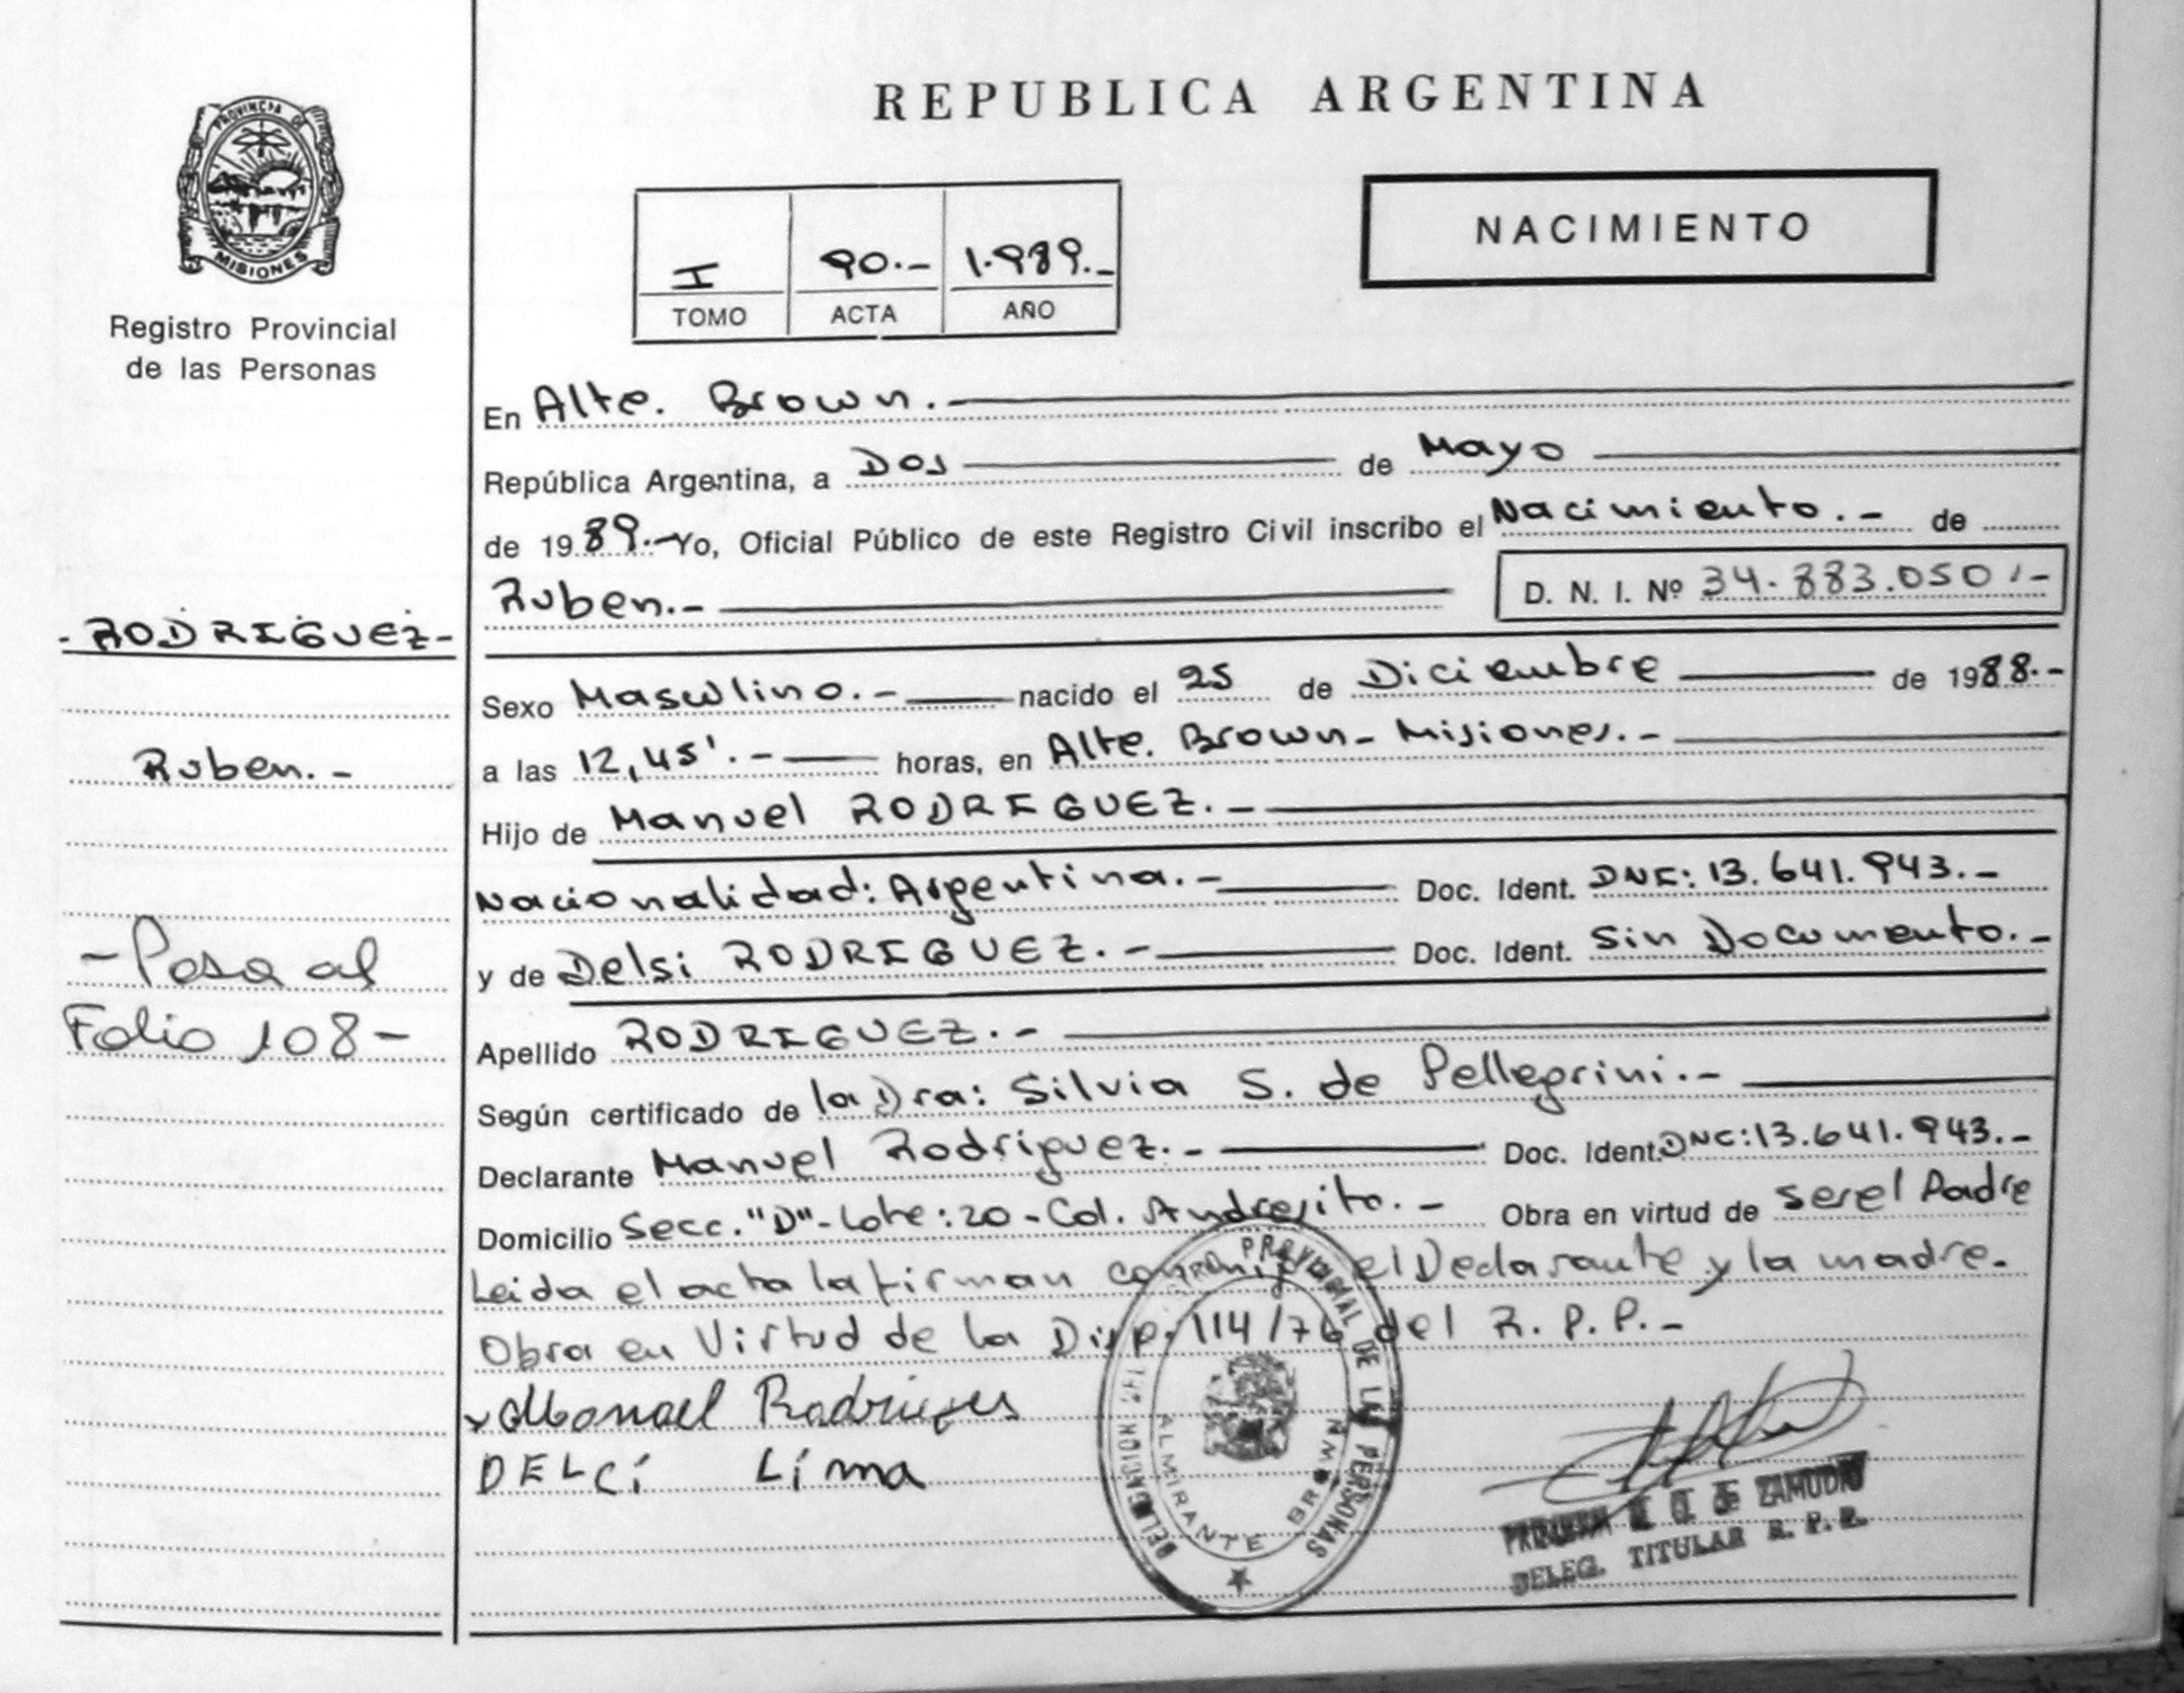 REPUBLICA ARGENTINA
PROVINCIA DE
MISIONES
Registro Provincial
de las Personas
NACIMIENTO
I 90.- 1.989.-
TOMO ACTA AÑO
En Alte. Brown.
República Argentina, a Dos de Mayo
de 1989.- Yo, Oficial Público de este Registro Civil inscribo el Nacimiento.- de
Ruben.- D. N. I. Nº 34.883.050.-
- RODRIGUEZ -
Sexo Masculino.- nacido el 25 de Diciembre de 1988.-
Ruben.-
a las 12,45'.- horas, en Alte. Brown- Misiones.-
Hijo de Manuel RODRIGUEZ.-
Nacionalidad: Argentina.- Doc. Ident. DNI: 13.641.943.-
y de Delsi RODRIGUEZ.- Doc. Ident. Sin Documento.-
- Pasa al
Folio 108 -
Apellido RODRIGUEZ.-
Según certificado de la Dra: Silvia S. de Pellegrini.-
Declarante Manuel Rodriguez.- Doc. Ident. DNI: 13.641.943.-
Domicilio Secc. "D"- Lote: 20 - Col. Andresito.- Obra en virtud de ser el Padre
Leida el acta la firman conmigo el Declarante y la madre.
Obra en Virtud de la Disp. 114/76 del R. P. P.-
Manael Rodrigues
DELCi Lima
DELEGACION DEL REGISTRO PROVINCIAL DE LAS PERSONAS
ALMIRANTE BROWN
DE ZAMUDIO
DELEG. TITULAR R. P. P.